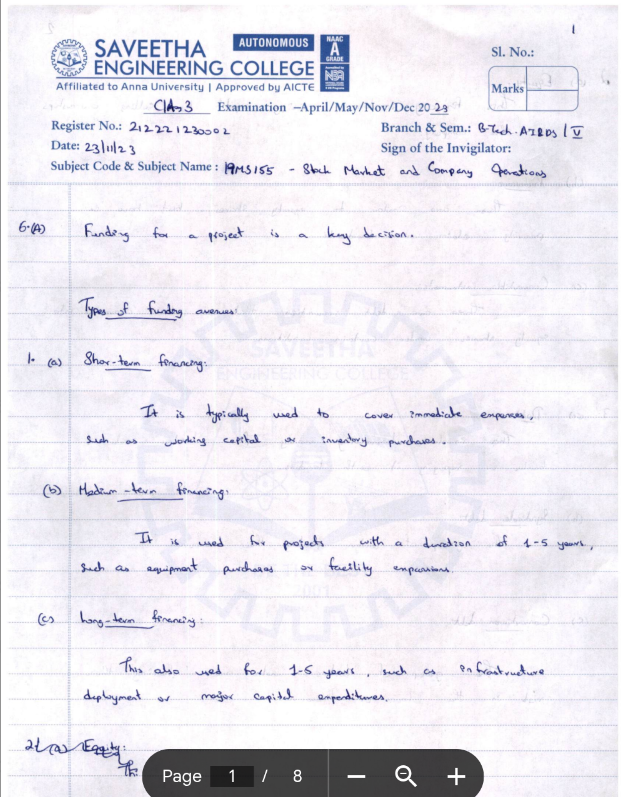 1
SAVEETHA
ENGINEERING COLLEGE
AUTONOMOUS
NAAC
A
GRADE
Affiliated to Anna University | Approved by AICTE
Sl. No.:
Marks
CIA-3 Examination –April/May/Nov/Dec 2023
Register No.: 212221230002
Branch & Sem.: B.Tech. AI&DS / V
Date: 23/11/23
Sign of the Invigilator:
Subject Code & Subject Name : 19MS155 - Stock Market and Company Operations
6.(A) Funding for a project is a key decision.
Types of funding avenues:
1. (a) Shor-term financing:
It is typically used to cover immediate expenses,
such as working capital or inventory purchases.
(b) Medium-term financing:
It is used for projects with a duration of 1-5 years,
such as equipment purchases or facility expansions.
(c) Long-term financing:
This also used for 1-5 years, such as infrastructure
deployment or major capital expenditures.
2 (a) Equity:
Th
Page 1 / 8